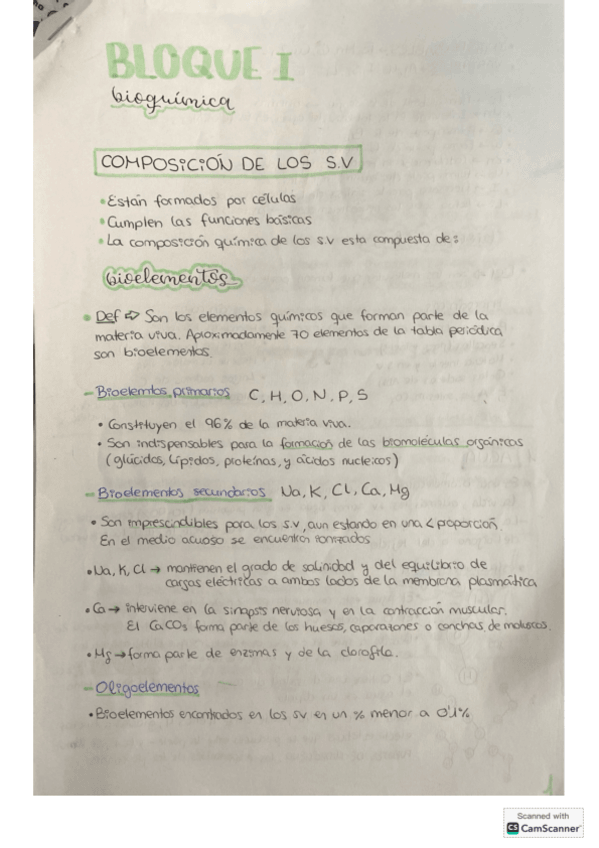 BLOQUE I
bioquímica
COMPOSICIÓN DE LOS S.V
• Están formados por células
• Cumplen las funciones básicas
• La composición química de los s.v esta compuesta de:
bioelementos
• Def ⇨ Son los elementos químicos que forman parte de la
materia viva. Aproximadamente 70 elementos de la tabla periódica
son bioelementos.
- Bioelemtos primarios C, H, O, N, P, S
• Constituyen el 96% de la materia viva.
• Son indispensables para la formación de las biomoléculas orgánicas
(glúcidos, lípidos, proteínas, y ácidos nucleicos)
- Bioelementos secundarios Na, K, Cl, Ca, Mg
• Son imprescindibles para los s.v, aun estando en una < proporción.
En el medio acuoso se encuentran ionizados
• Na, K, Cl → mantienen el grado de salinidad y del equilibrio de
cargas eléctricas a ambos lados de la membrana plasmática
• Ca → interviene en la sinapsis nerviosa y en la contracción muscular.
El CaCO₃ forma parte de los huesos, caparazones o conchas de moluscos.
• Mg → forma parte de enzimas y de la clorofila.
- Oligoelementos
• Bioelementos encontrados en los sv en un % menor a 0'1%
1
Scanned with
CS CamScanner